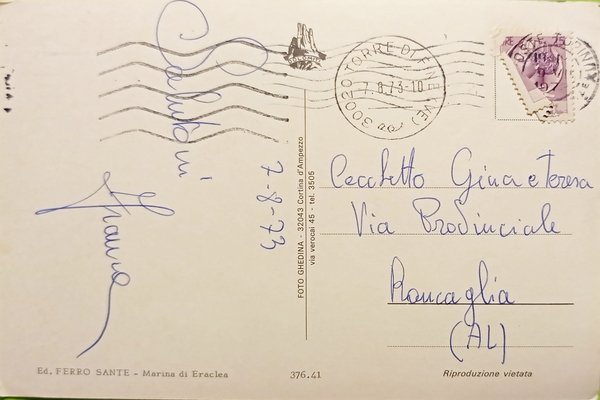 Salutoni
Franco
7-8-73
30020 TORRE DI FINE (VE)
7.8.73-10
Cecchetto Gina e Teresa
Via Provinciale
Roncaglia
(AL)
FOTO GHEDINA - 32043 Cortina d'Ampezzo
via verocai 45 - tel. 3505
Ed. FERRO SANTE - Marina di Eraclea
376.41
Riproduzione vietata